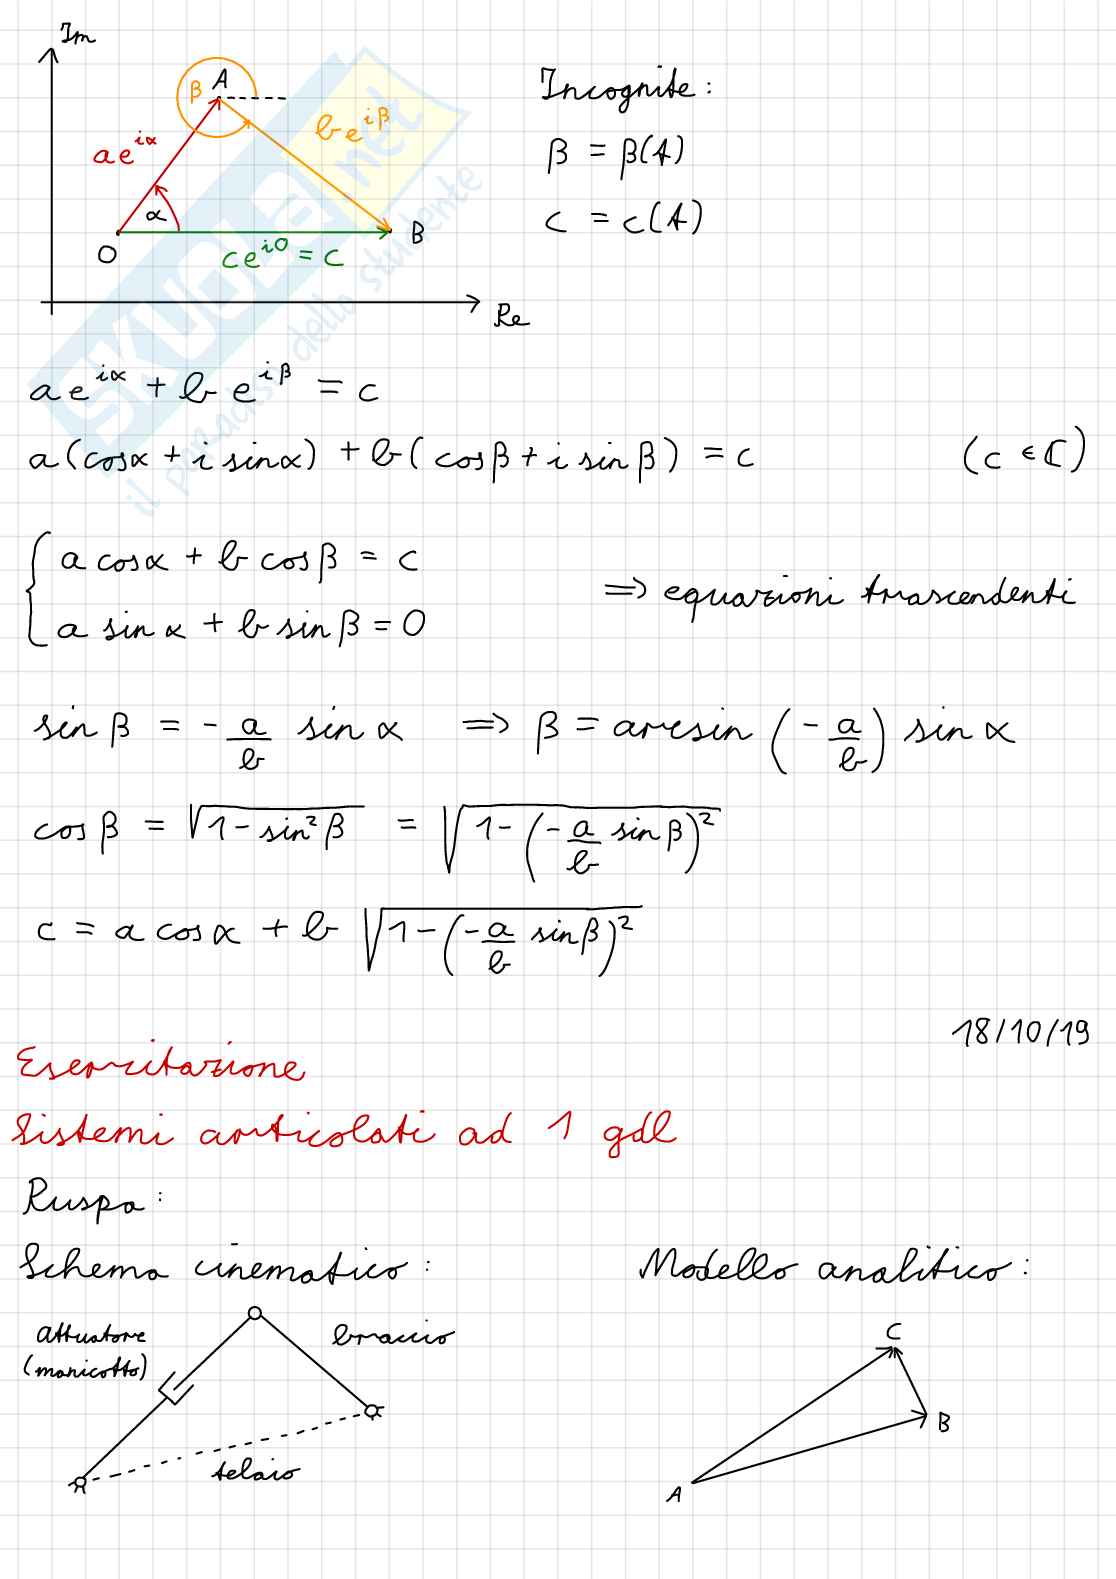 Im
A
β
ae^{iα}
be^{iβ}
α
O
B
ce^{i0} = c
Re
Incognite:
β = β(A)
c = c(A)
SKUOLA.net
il paradiso dello studente
ae^{iα} + be^{iβ} = c
a(cosα + i sinα) + b(cosβ + i sinβ) = c (c ∈ ℂ)
{ a cosα + b cosβ = c
a sinα + b sinβ = 0
⇒ equazioni trascendenti
sinβ = -a/b sinα ⇒ β = arcsin(-a/b) sinα
cosβ = √(1-sin²β) = √(1-(-a/b sinβ)²)
c = a cosα + b √(1-(-a/b sinβ)²)
18/10/19
Esercitazione
Sistemi articolati ad 1 gdl
Ruspa:
Schema cinematico:
attuatore
(manicotto)
braccio
telaio
Modello analitico:
C
B
A